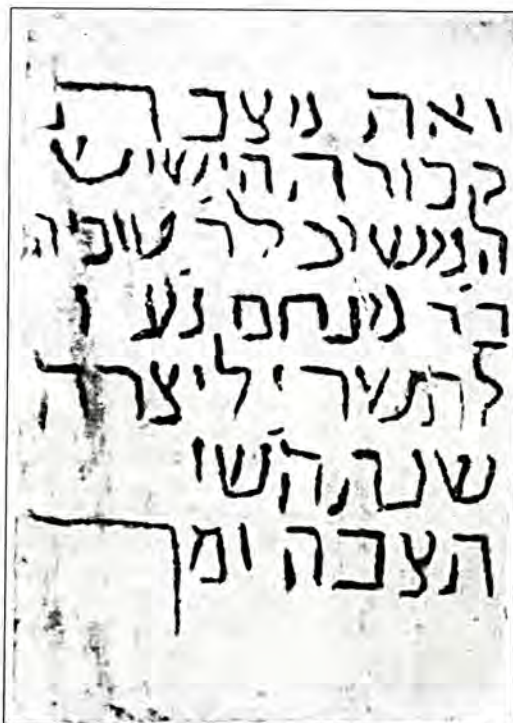 זאת מצבת
קבורה הישיש
המשיכ לר טוביה
בר מנחם נ״ע ו
לתשרי ליצרה
שנת ה׳שי
תנצבה